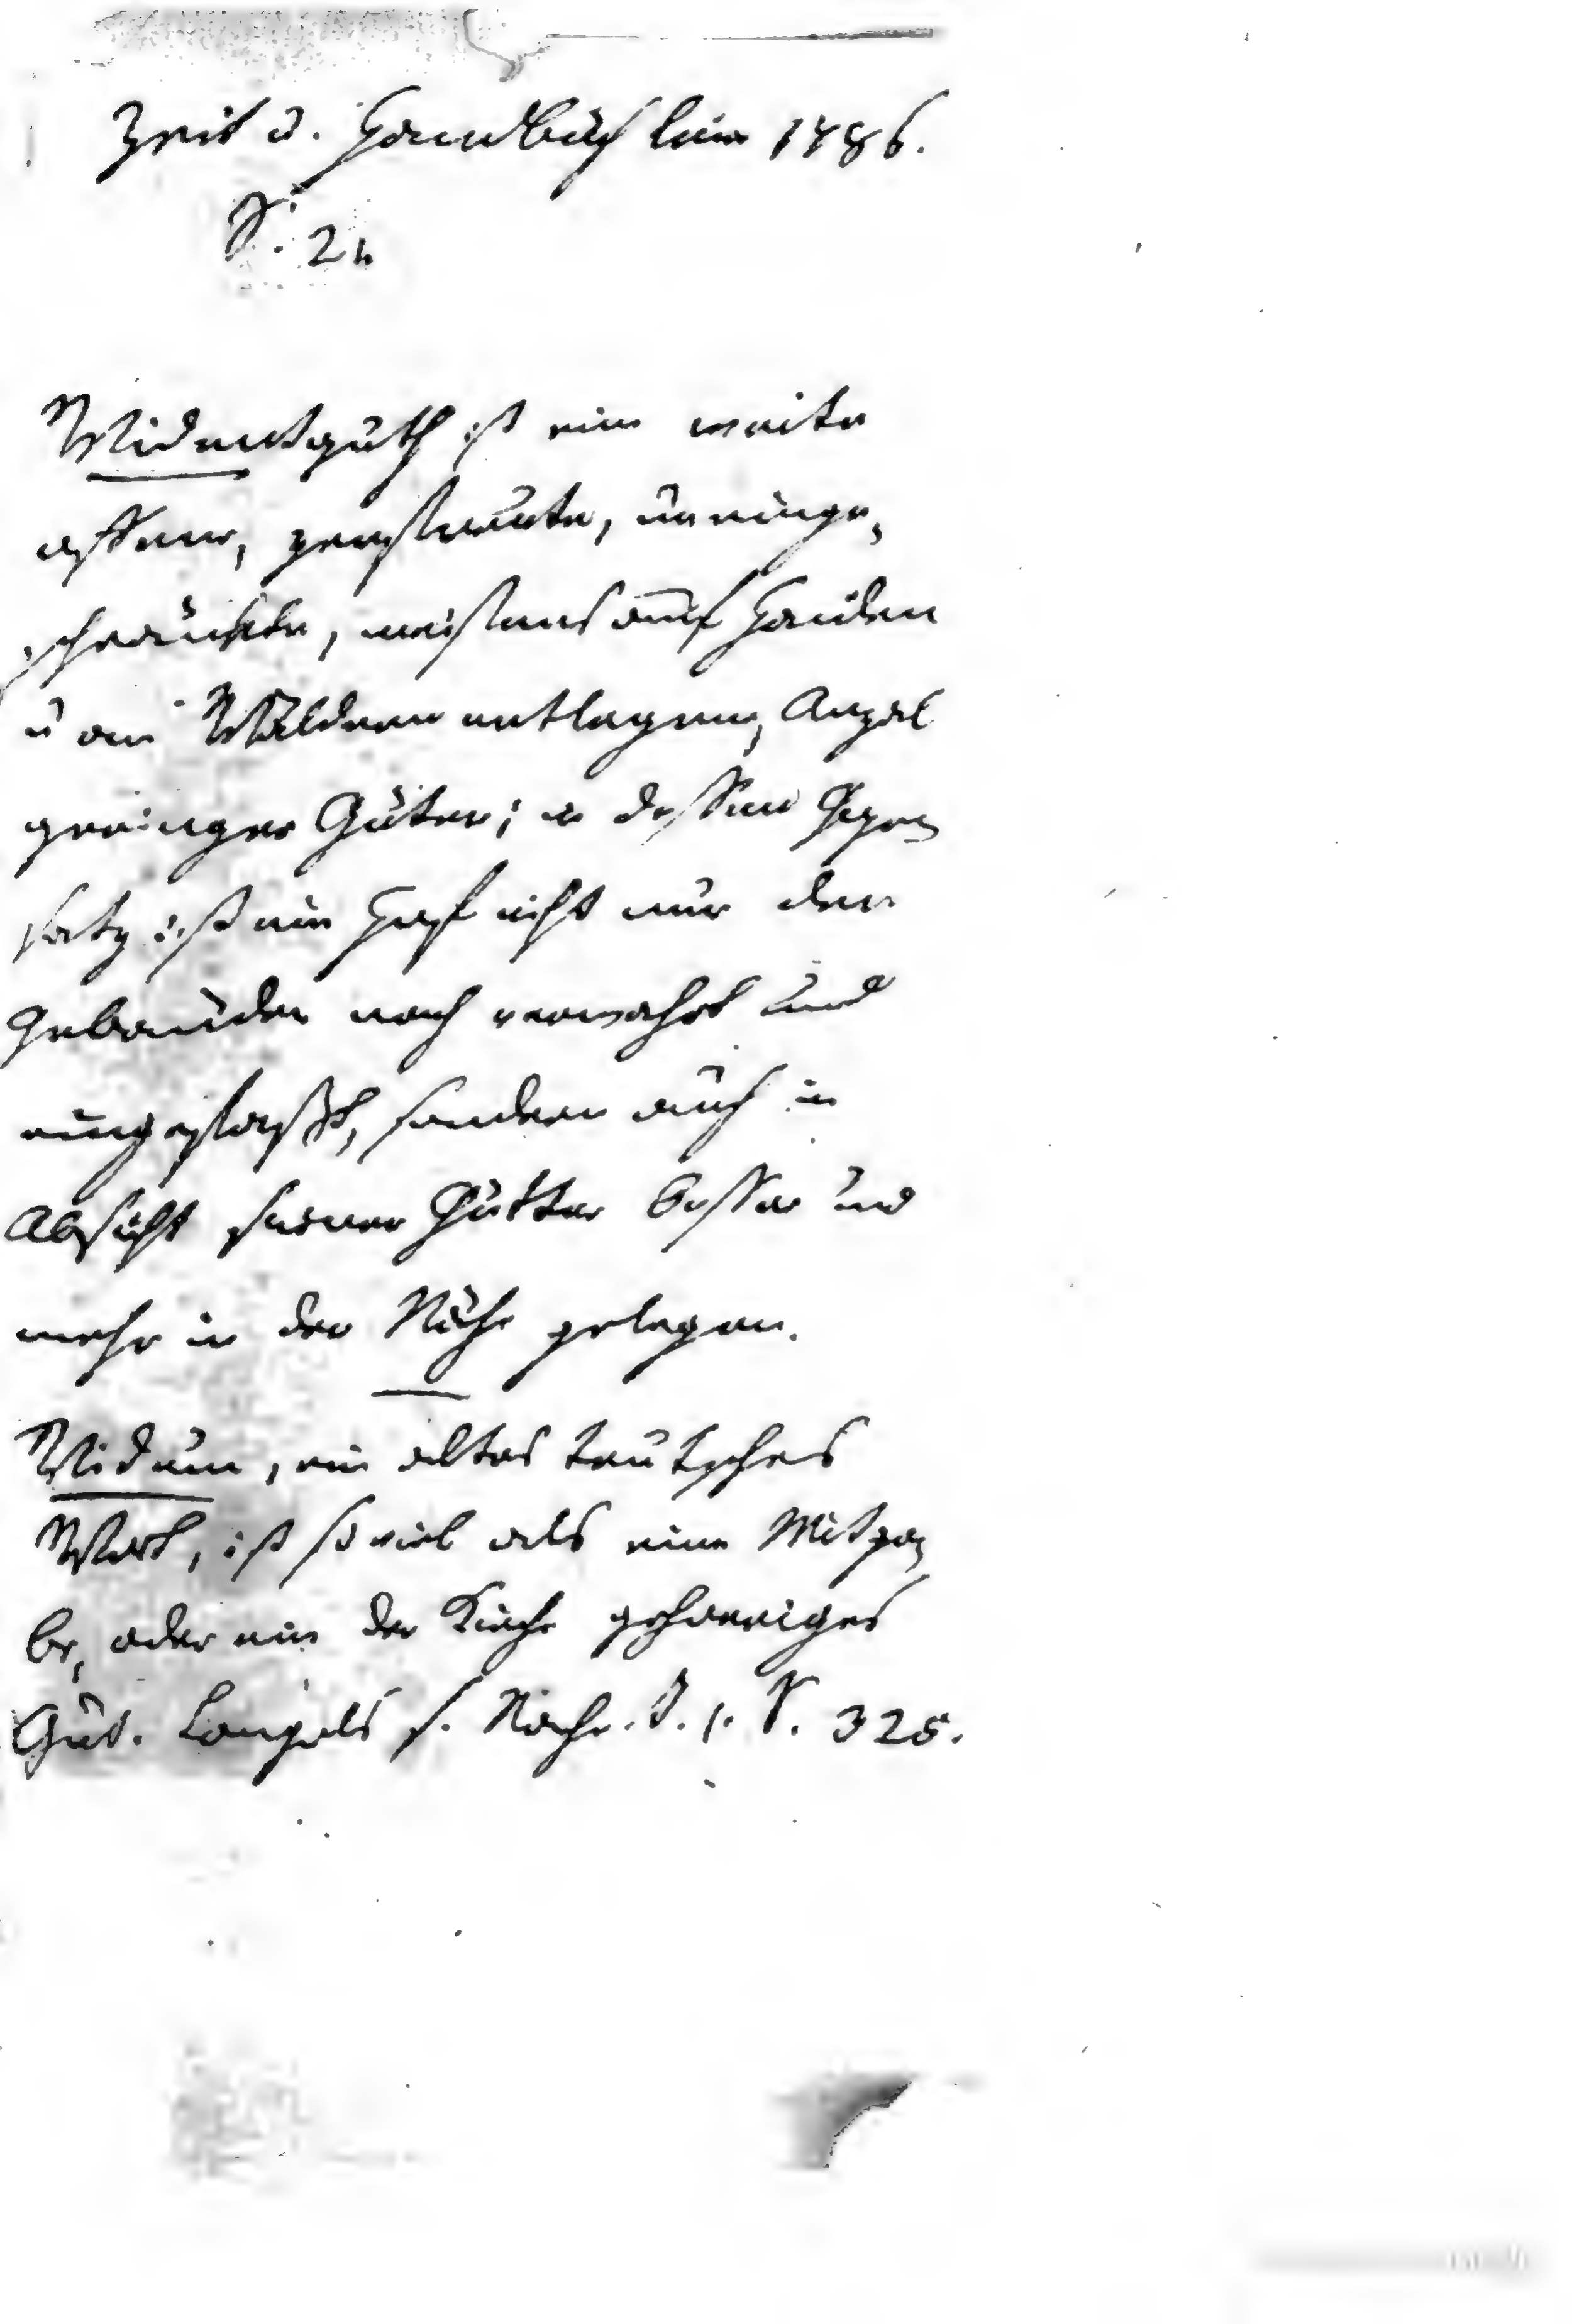 Zeit u. Handbüchlein 1786.
S. 21.
Widemtguth ist eine weite
offene, zerstreute, uneinge-
schränkte, meistens auf Haiden
u an Wäldern entlegene, Anzal
geringer Güter; in dessen Gegen-
satz ist ein Hof nicht nur der
Gebäuden nach verwahrt und
eingeschlossen, sondern auch in
Absicht seiner Gütter besser und
mehr in der Nähe gelegen.
Widum, ein altes teutsches
Wort, ist so viel als eine Mitga-
be, oder ein der Kirche gehoeriges
Gut. Langels s. Nachr. S. 325.